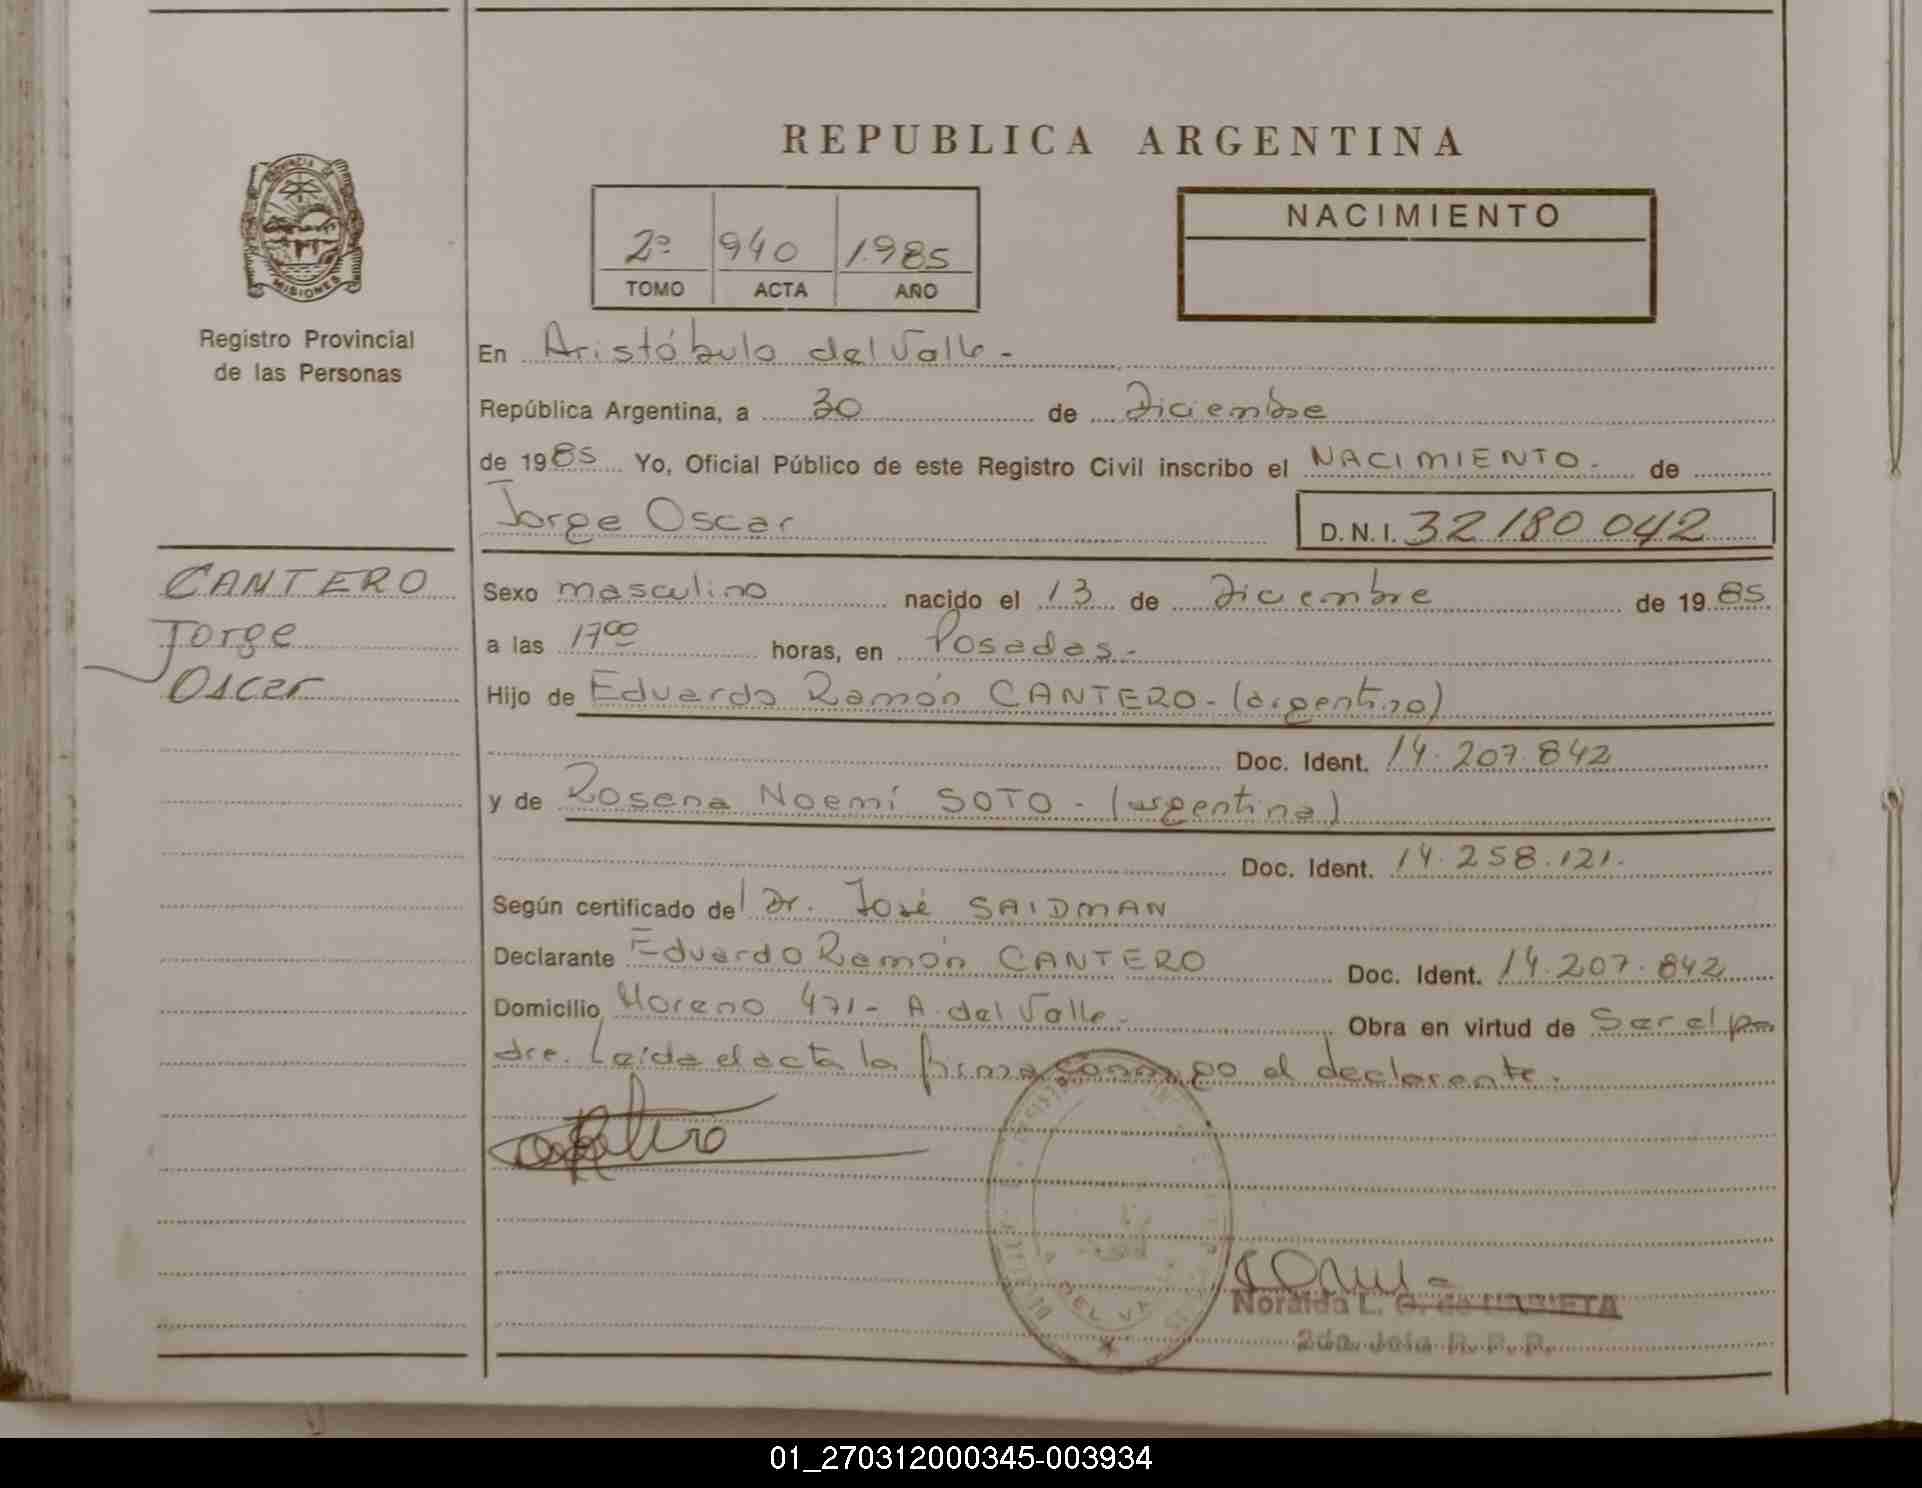 REPUBLICA ARGENTINA
PROVINCIA DE
MISIONES
Registro Provincial
de las Personas
2º 940 1.985
TOMO ACTA AÑO
NACIMIENTO
En Aristóbulo del Valle -
República Argentina, a 30 de Diciembre
de 1985 Yo, Oficial Público de este Registro Civil inscribo el NACIMIENTO.- de
Jorge Oscar D.N.I. 32180042
CANTERO
Jorge
Oscar
Sexo masculino nacido el 13 de Diciembre de 1985
a las 17 00 horas, en Posadas.-
Hijo de Eduardo Ramón CANTERO.- (argentino)
Doc. Ident. 14.207.842
y de Rosana Noemí SOTO.- (argentina)
Doc. Ident. 14.258.121.
Según certificado del Dr. José SAIDMAN
Declarante Eduardo Ramón CANTERO Doc. Ident. 14.207.842
Domicilio Moreno 471- A. del Valle.- Obra en virtud de Ser el pa
dre. Leída el acta la firma conmigo el declarante.
A. DEL VALLE
Noraida L. G. de
2da. Jefa R. P. P.
01_270312000345-003934